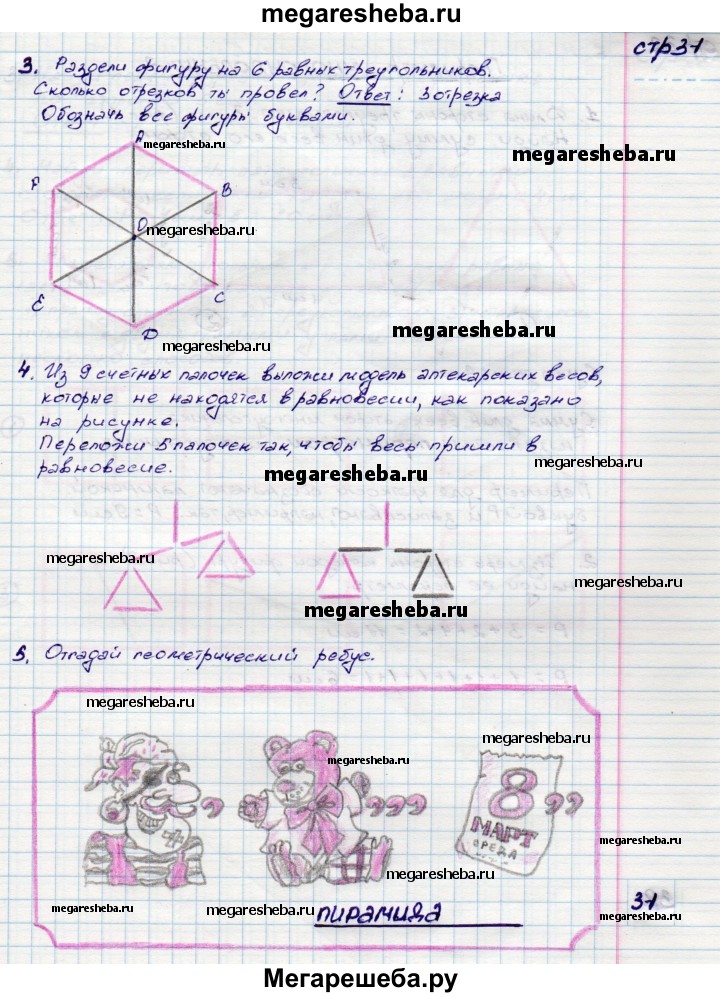 megaresheba.ru
стр31
3. Раздели фигуру на 6 равных треугольников.
Сколько отрезков ты провел? Ответ: 3 отрезка
Обозначь все фигуры буквами.
A
megaresheba.ru
F
B
O
megaresheba.ru
E
C
D
megaresheba.ru
megaresheba.ru
megaresheba.ru
4. Из 9 счетных палочек выложи модель аптекарских весов,
которые не находятся в равновесии, как показано
на рисунке.
Переложи 5 палочек так, чтобы весы пришли в
равновесие.
megaresheba.ru
megaresheba.ru
megaresheba.ru
megaresheba.ru
megaresheba.ru
5. Отгадай геометрический ребус.
megaresheba.ru
megaresheba.ru
megaresheba.ru
,
,,,
8
МАРТ
СРЕДА
,,
megaresheba.ru
megaresheba.ru
31
megaresheba.ru
megaresheba.ru
megaresheba.ru
ПИРАМИДА
megaresheba.ru
Мегарешеба.ру